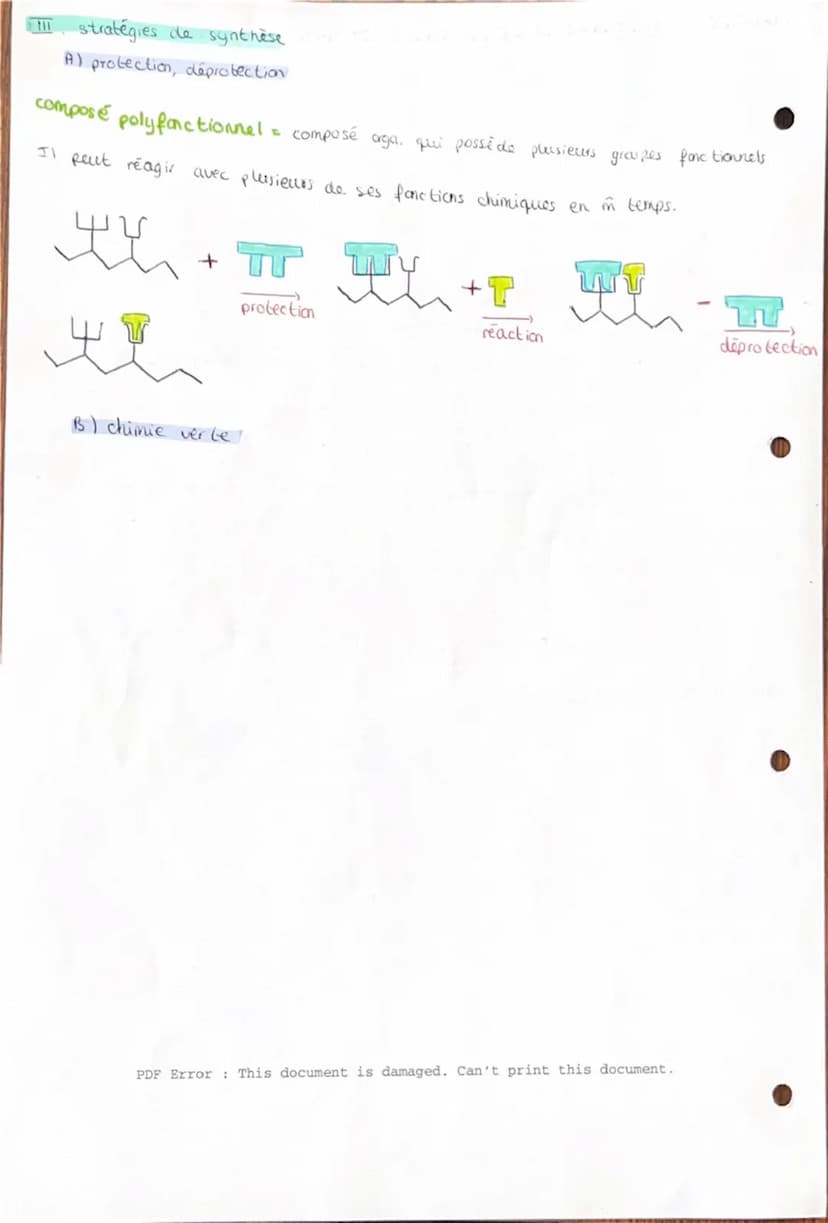 III. stratégies de synthèse
A) protection, déprotection
composé polyfonctionnel = composé orga. qui possède plusieurs groupes fonctionnels
Il peut réagir avec plusieurs de ses fonctions chimiques en m̂ temps.
+
protection
+
réaction
-
déprotection
B) chimie verte
PDF Error : This document is damaged. Can't print this document.